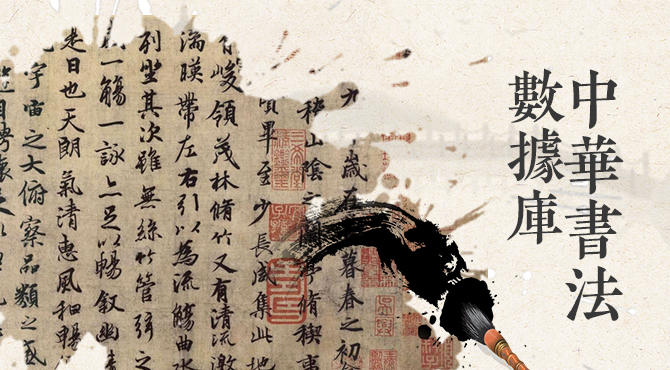 中華書法
數據庫
歲在暮春之初
山陰之蘭亭脩稧事
畢至少長咸集此地
有峻領茂林脩竹又有清流激
湍暎帶左右引以為流觴曲水
列坐其次雖無絲竹管弦之
一觴一詠亦足以暢敘幽
是日也天朗氣清惠風和暢
宇宙之大俯察品類之盛
目騁懷